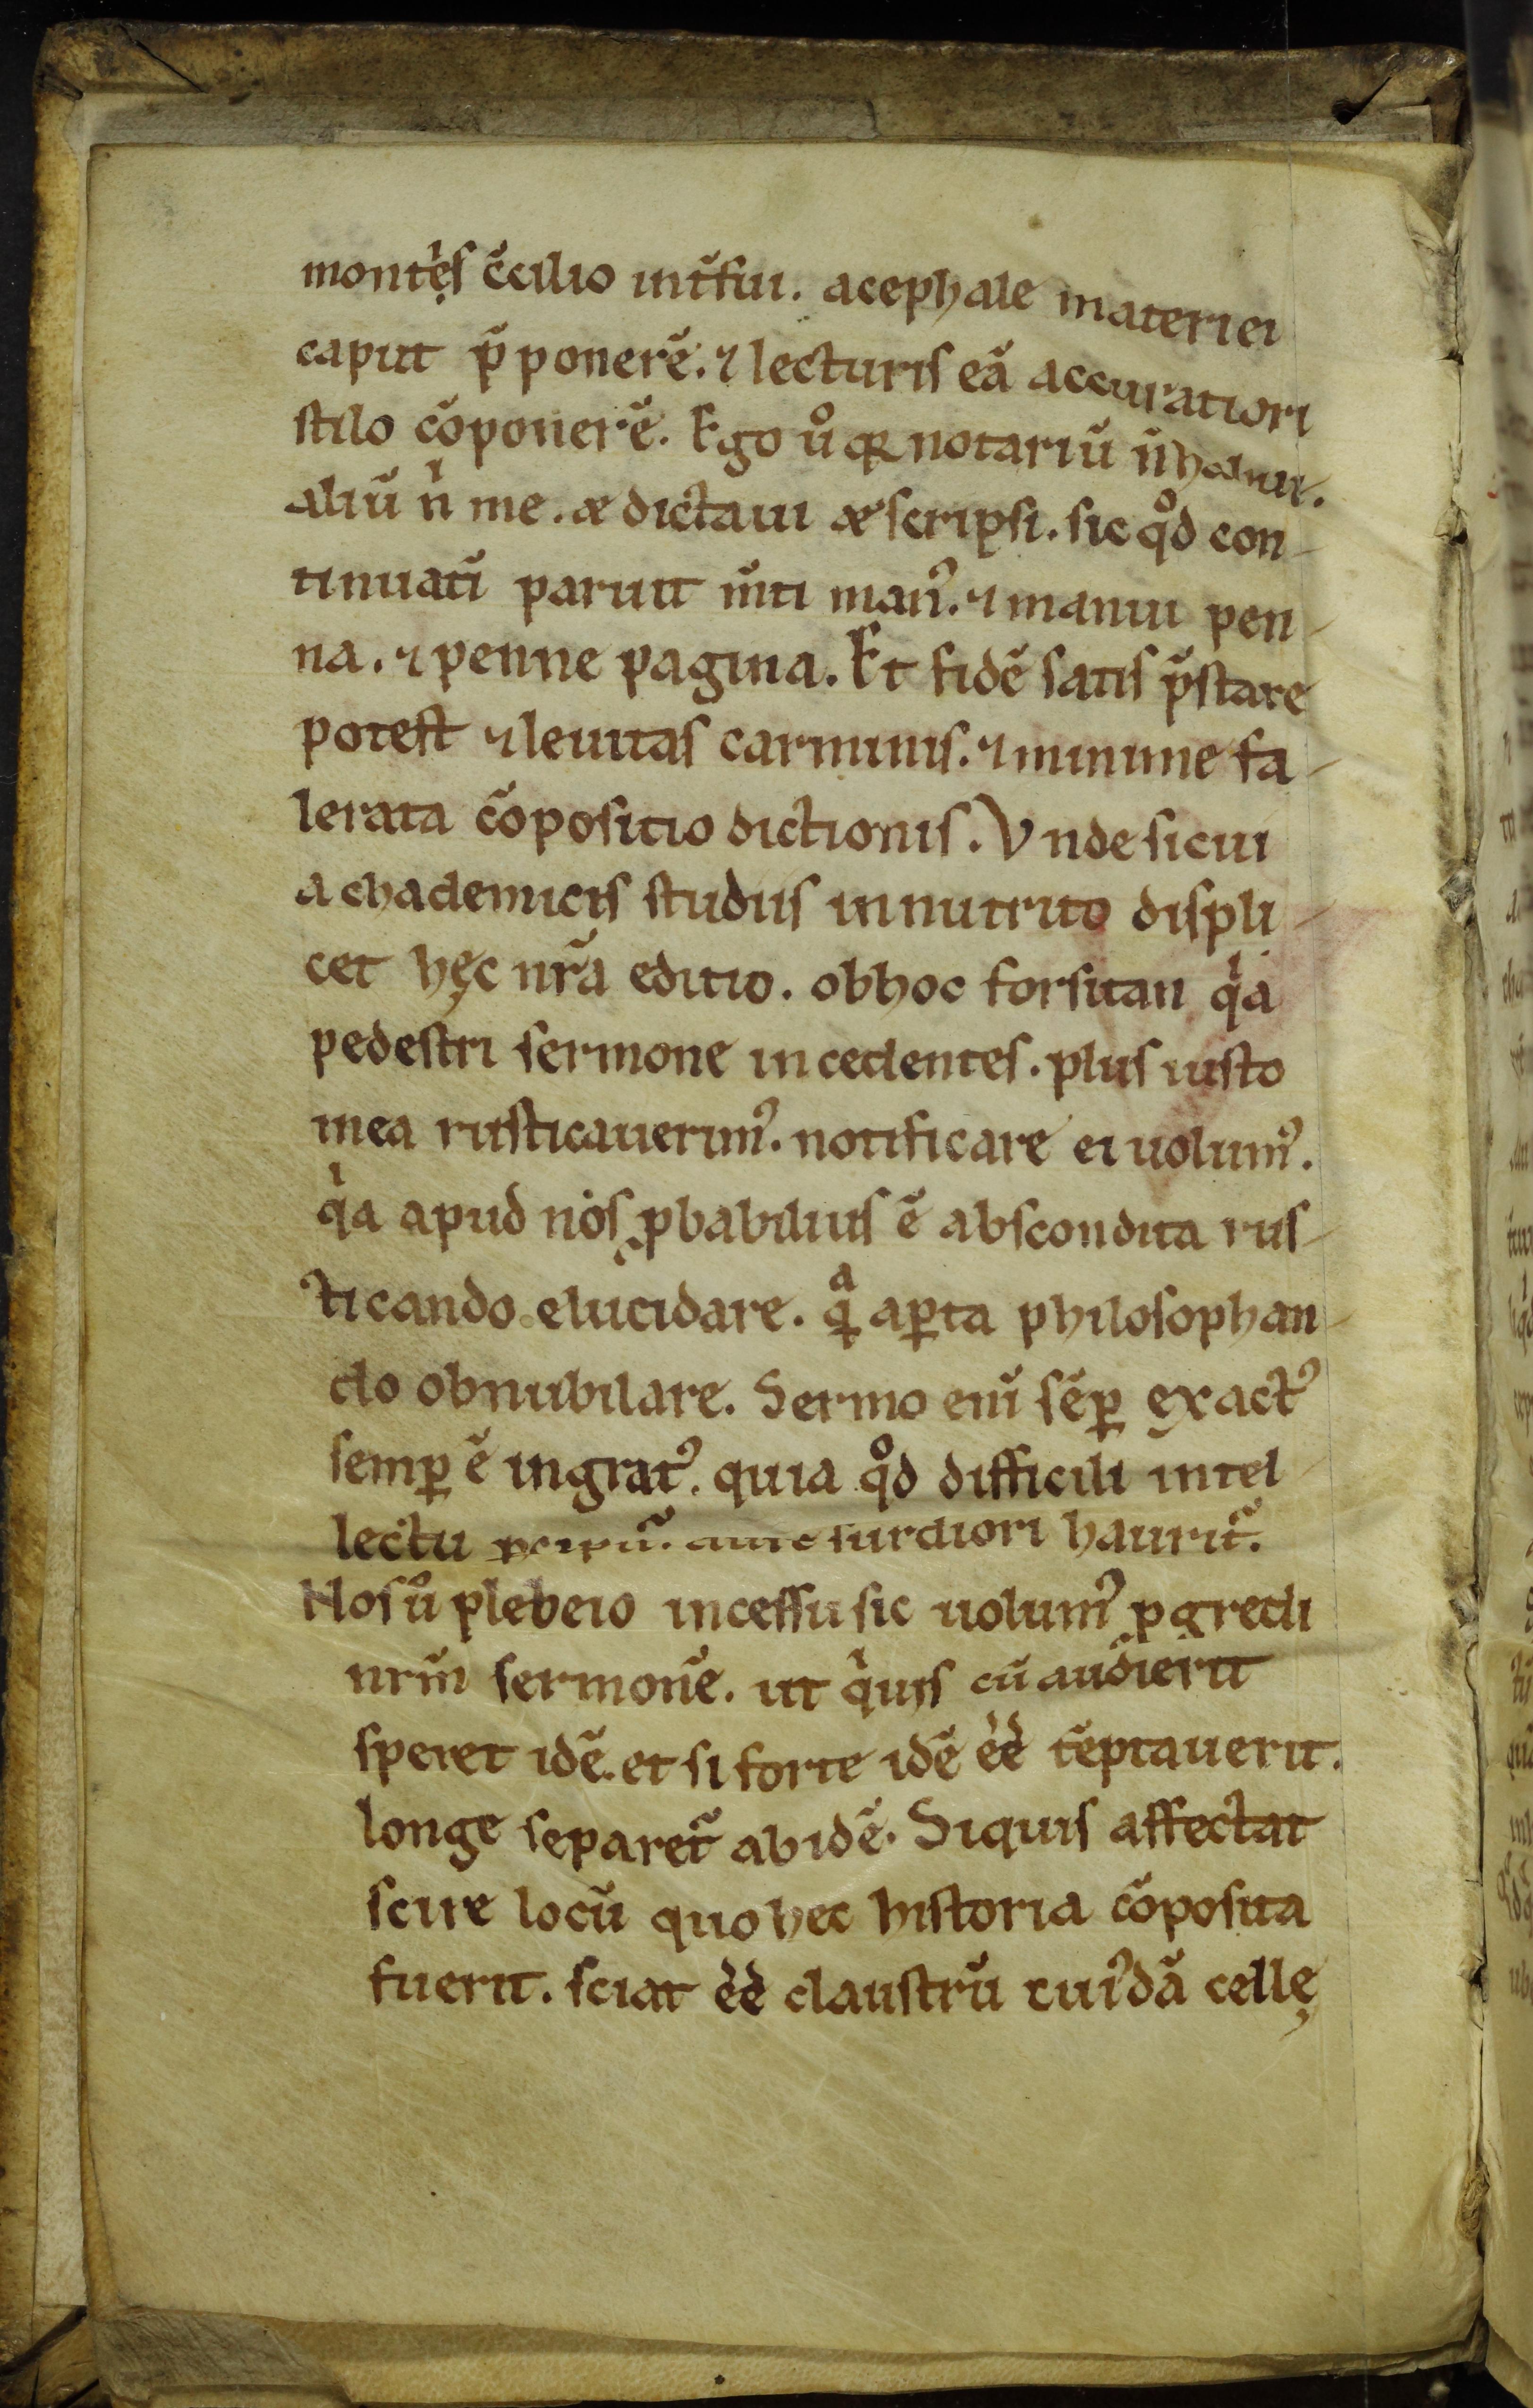 montęs c̄cilio int̄fui. acephale materiei
caput p̄ponerē. ⁊ lecturis eā accuratiori
stilo cōponerē. Ego uͦ quia notariū n̄ habui.
aliū nͥ me. & dictaui & scripsi. sic qͦd con-
tinuatī paruit m̄ti man᾽. ⁊ manui pen-
na. ⁊ penne pagina. Et fidē satis p̄stare
potest ⁊ leuitas carminis. ⁊ minime fa-
lerata cōpositio dictionis. Vnde si cui
achademicis studiis innutrito displi-
cet hęc nr̄a editio. ob hoc forsitan qͥa
pedestri sermone incedentes. plus iusto
in ea rusticauerim᾽. notificare ei uolum᾽.
qͥa apud nos ꝓbabilius ē abscondita rus-
ticando elucidare. qᵃ aꝑta philosophan-
do obnubilare. Sermo enī sēꝑ exact᾽
semꝑ ē ingrat᾽. quia qͦd difficili intel-
lectu surdiori haurit̄.
Nos uͦ plebeio incessu sic uolum᾽ ꝓgredi
nr̄m sermonē. ut qͥuis cū audierit
speret idē. et si forte idē ee̅ tēptauerit.
longe separet̄ ab idē. Siquis affectat
scire locū quo hec historia cōposita
fuerit. sciat ee̅ claustrū cui᾽dā cellę